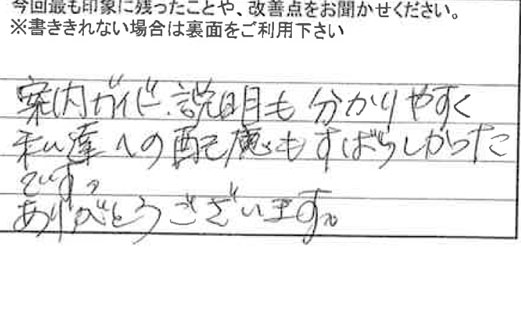 今回最も印象に残ったことや、改善点をお聞かせください。
※書ききれない場合は裏面をご利用下さい
案内ガイド、説明も分かりやすく
私達への配慮もすばらしかった
です。
ありがとうございます。